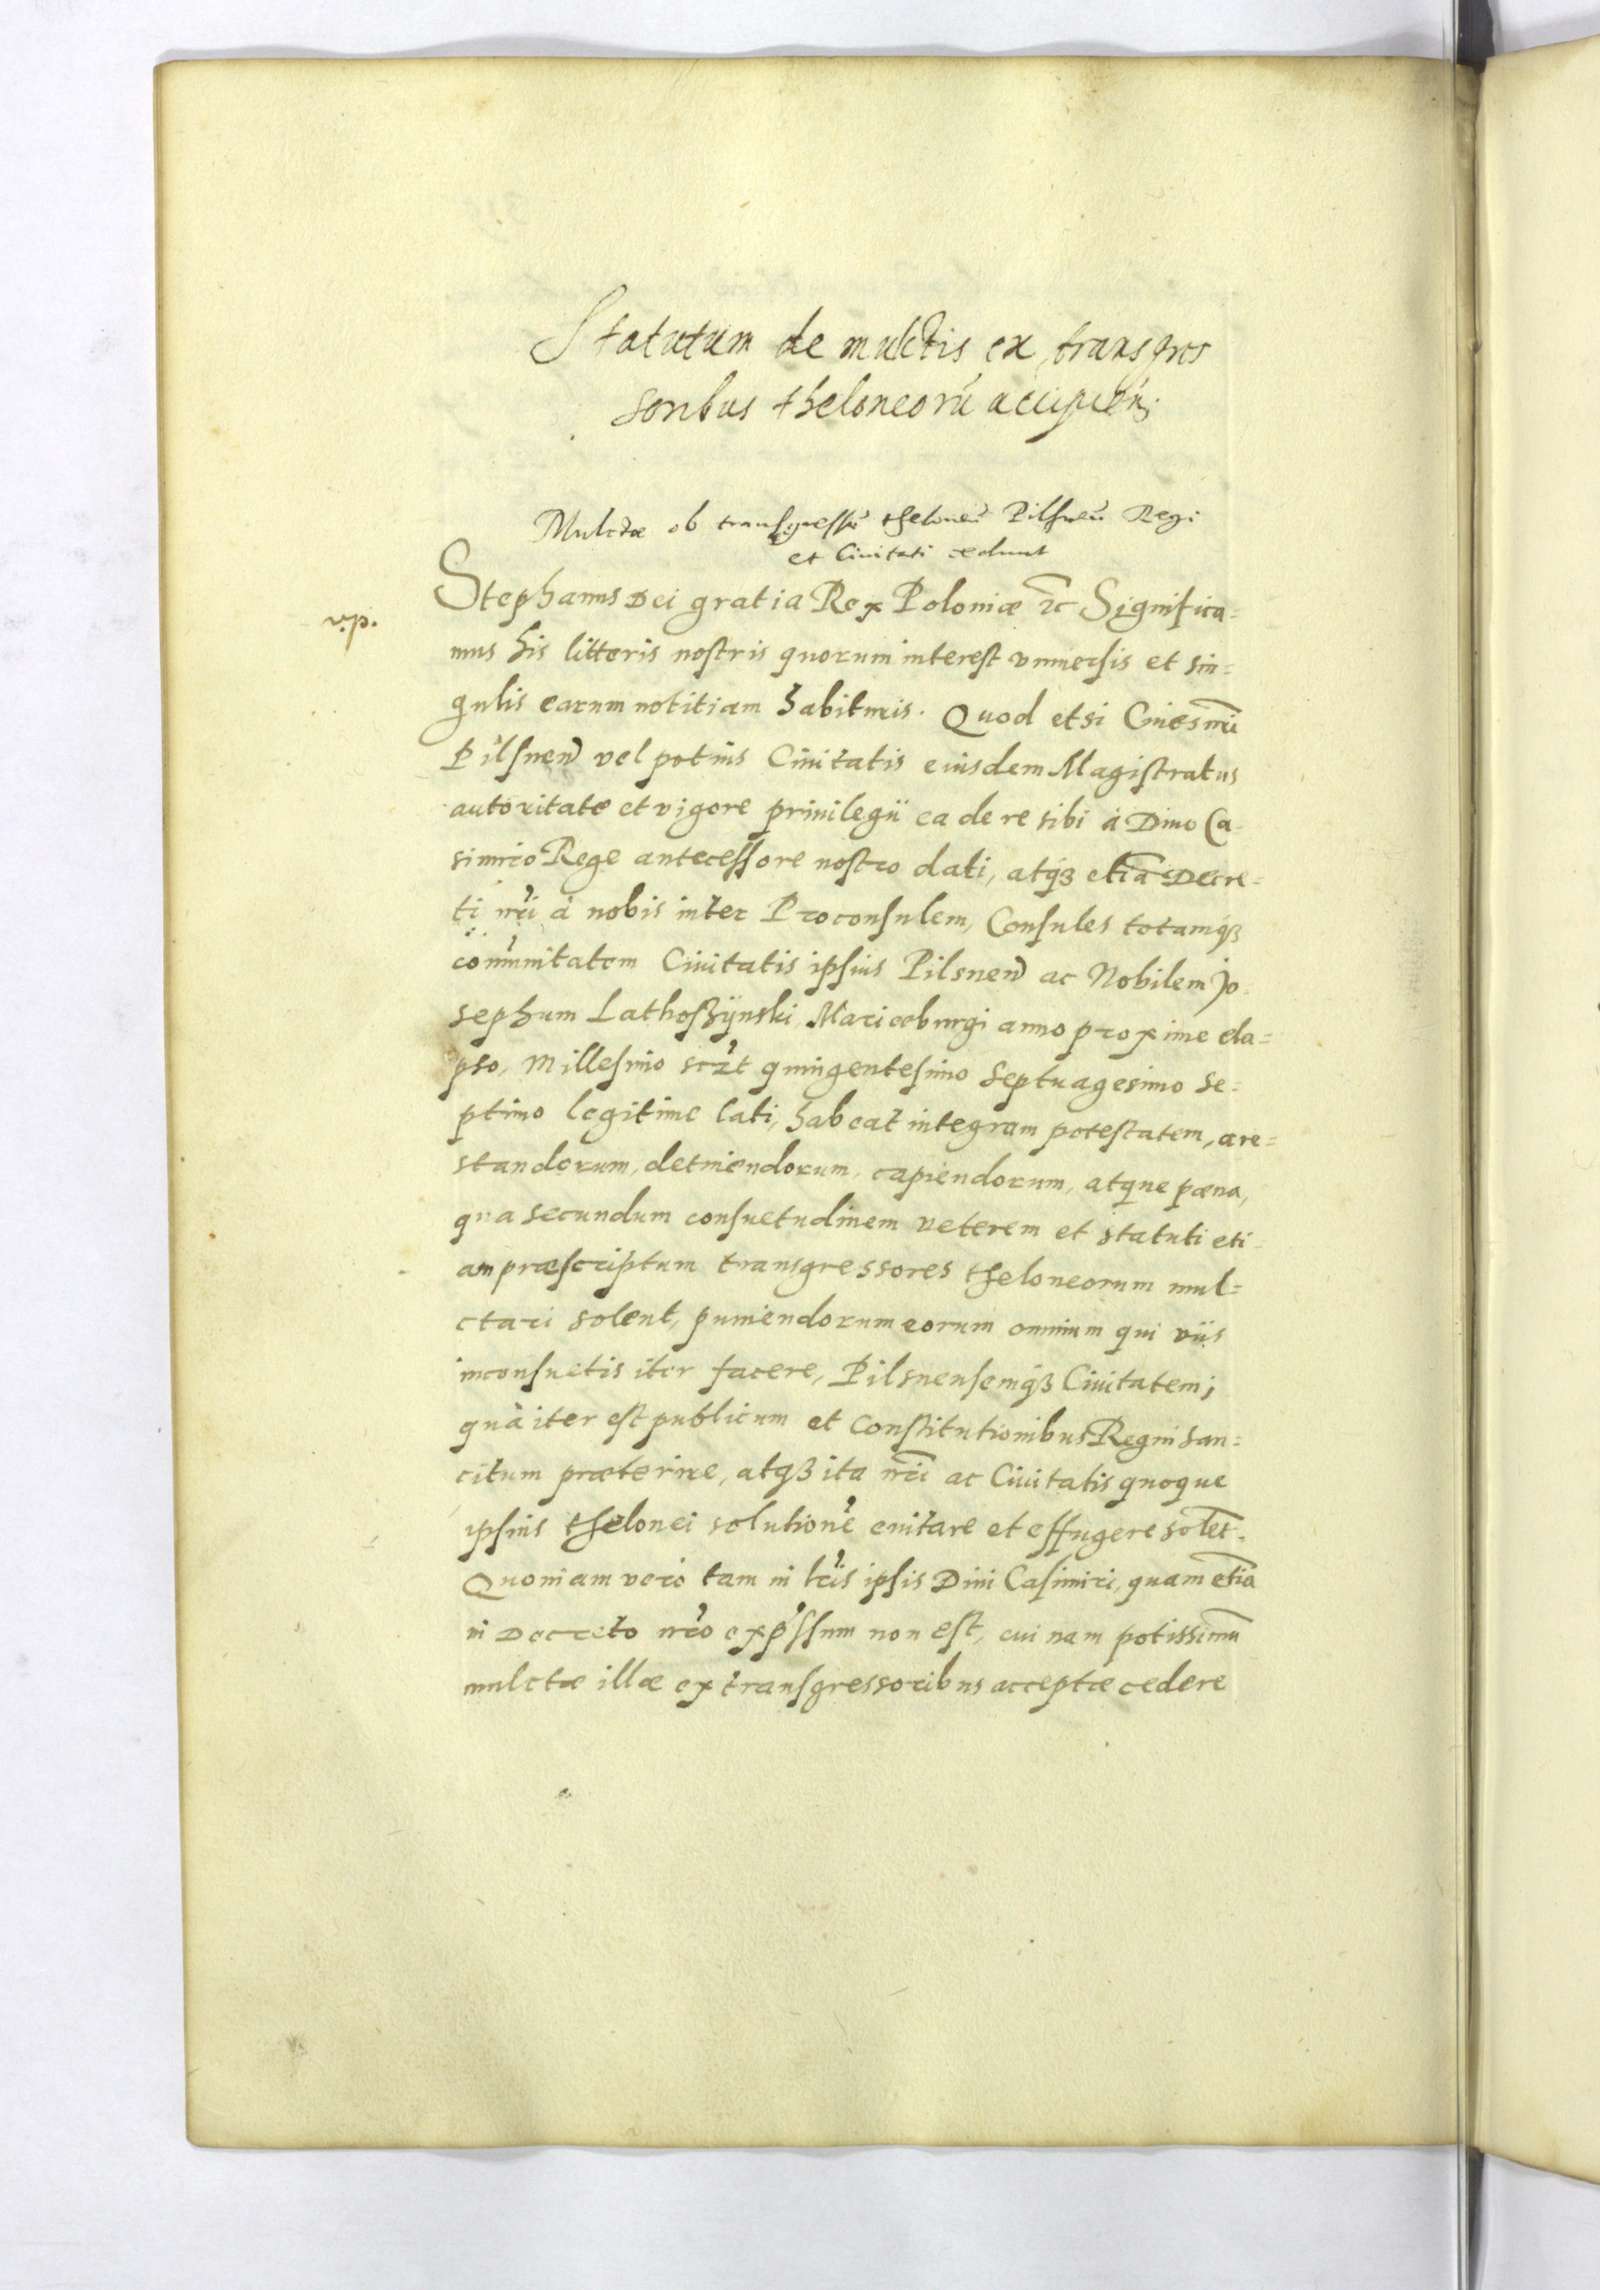 Statutum de mulctis ex transgres
soribus theloneorū accipien̄:
Mulctæ ob transgressū theloneū Pilsneñ Regi
et Ciuitati cedunt
v.p.
Stephanus Dei gratia Rex Poloniæ etc Significa-
mus his litteris nostris quorum interest vniuersis et sin=
gulis earum notitiam habituris. Quod etsi Ciues nr̄i
Pilsneñ vel potius Ciuitatis eiusdem Magistratus
autoritate et vigore priuilegii ea de re sibi à Diuo Ca-
simiro Rege antecessore nostro dati, atqȝ etiā Decre-
ti nr̄i à nobis inter Proconsulem, Consules totamqȝ
com̄unitatem Ciuitatis ipsius Pilsneñ ac Nobilem Jo-
sephum Lathoszÿnski Marieeburgi anno proxime ela=
pso, Millesimo sczt quingentesimo Septuagesimo Se=
ptimo legitime lati, habeat integram potestatem, are=
standorum, detinendorum, capiendorum, atque pæna,
qua secundum consuetudinem veterem et statuti eti-
am præscriptum transgressores theloneorum mul=
ctari solent, puniendorum eorum omnium qui viis
inconsuetis iter facere, Pilsnensemqȝ Ciuitatem;
quà iter est publicum et Constitutionibus Regni san=
citum præterire, atqȝ ita nr̄i ac Ciuitatis quoque
ipsius thelonei solutionē euitare et effugere solēt.
Quoniam verò tam in lr̄is ipsis Diui Casimiri, quam etiā
in Decreto nr̄o exp̄ssum non est, cui nam potissimū
mulctæ illæ ex transgressoribus acceptæ cedere